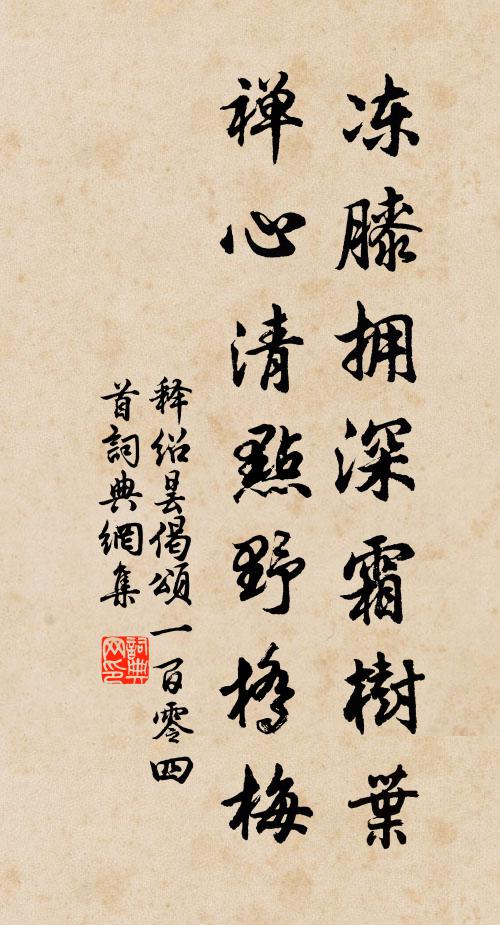 冻膝拥深霜樹葉
禅心清點野橋梅
释绍昙偈頌一百零四
首詞典網集
詞典网印